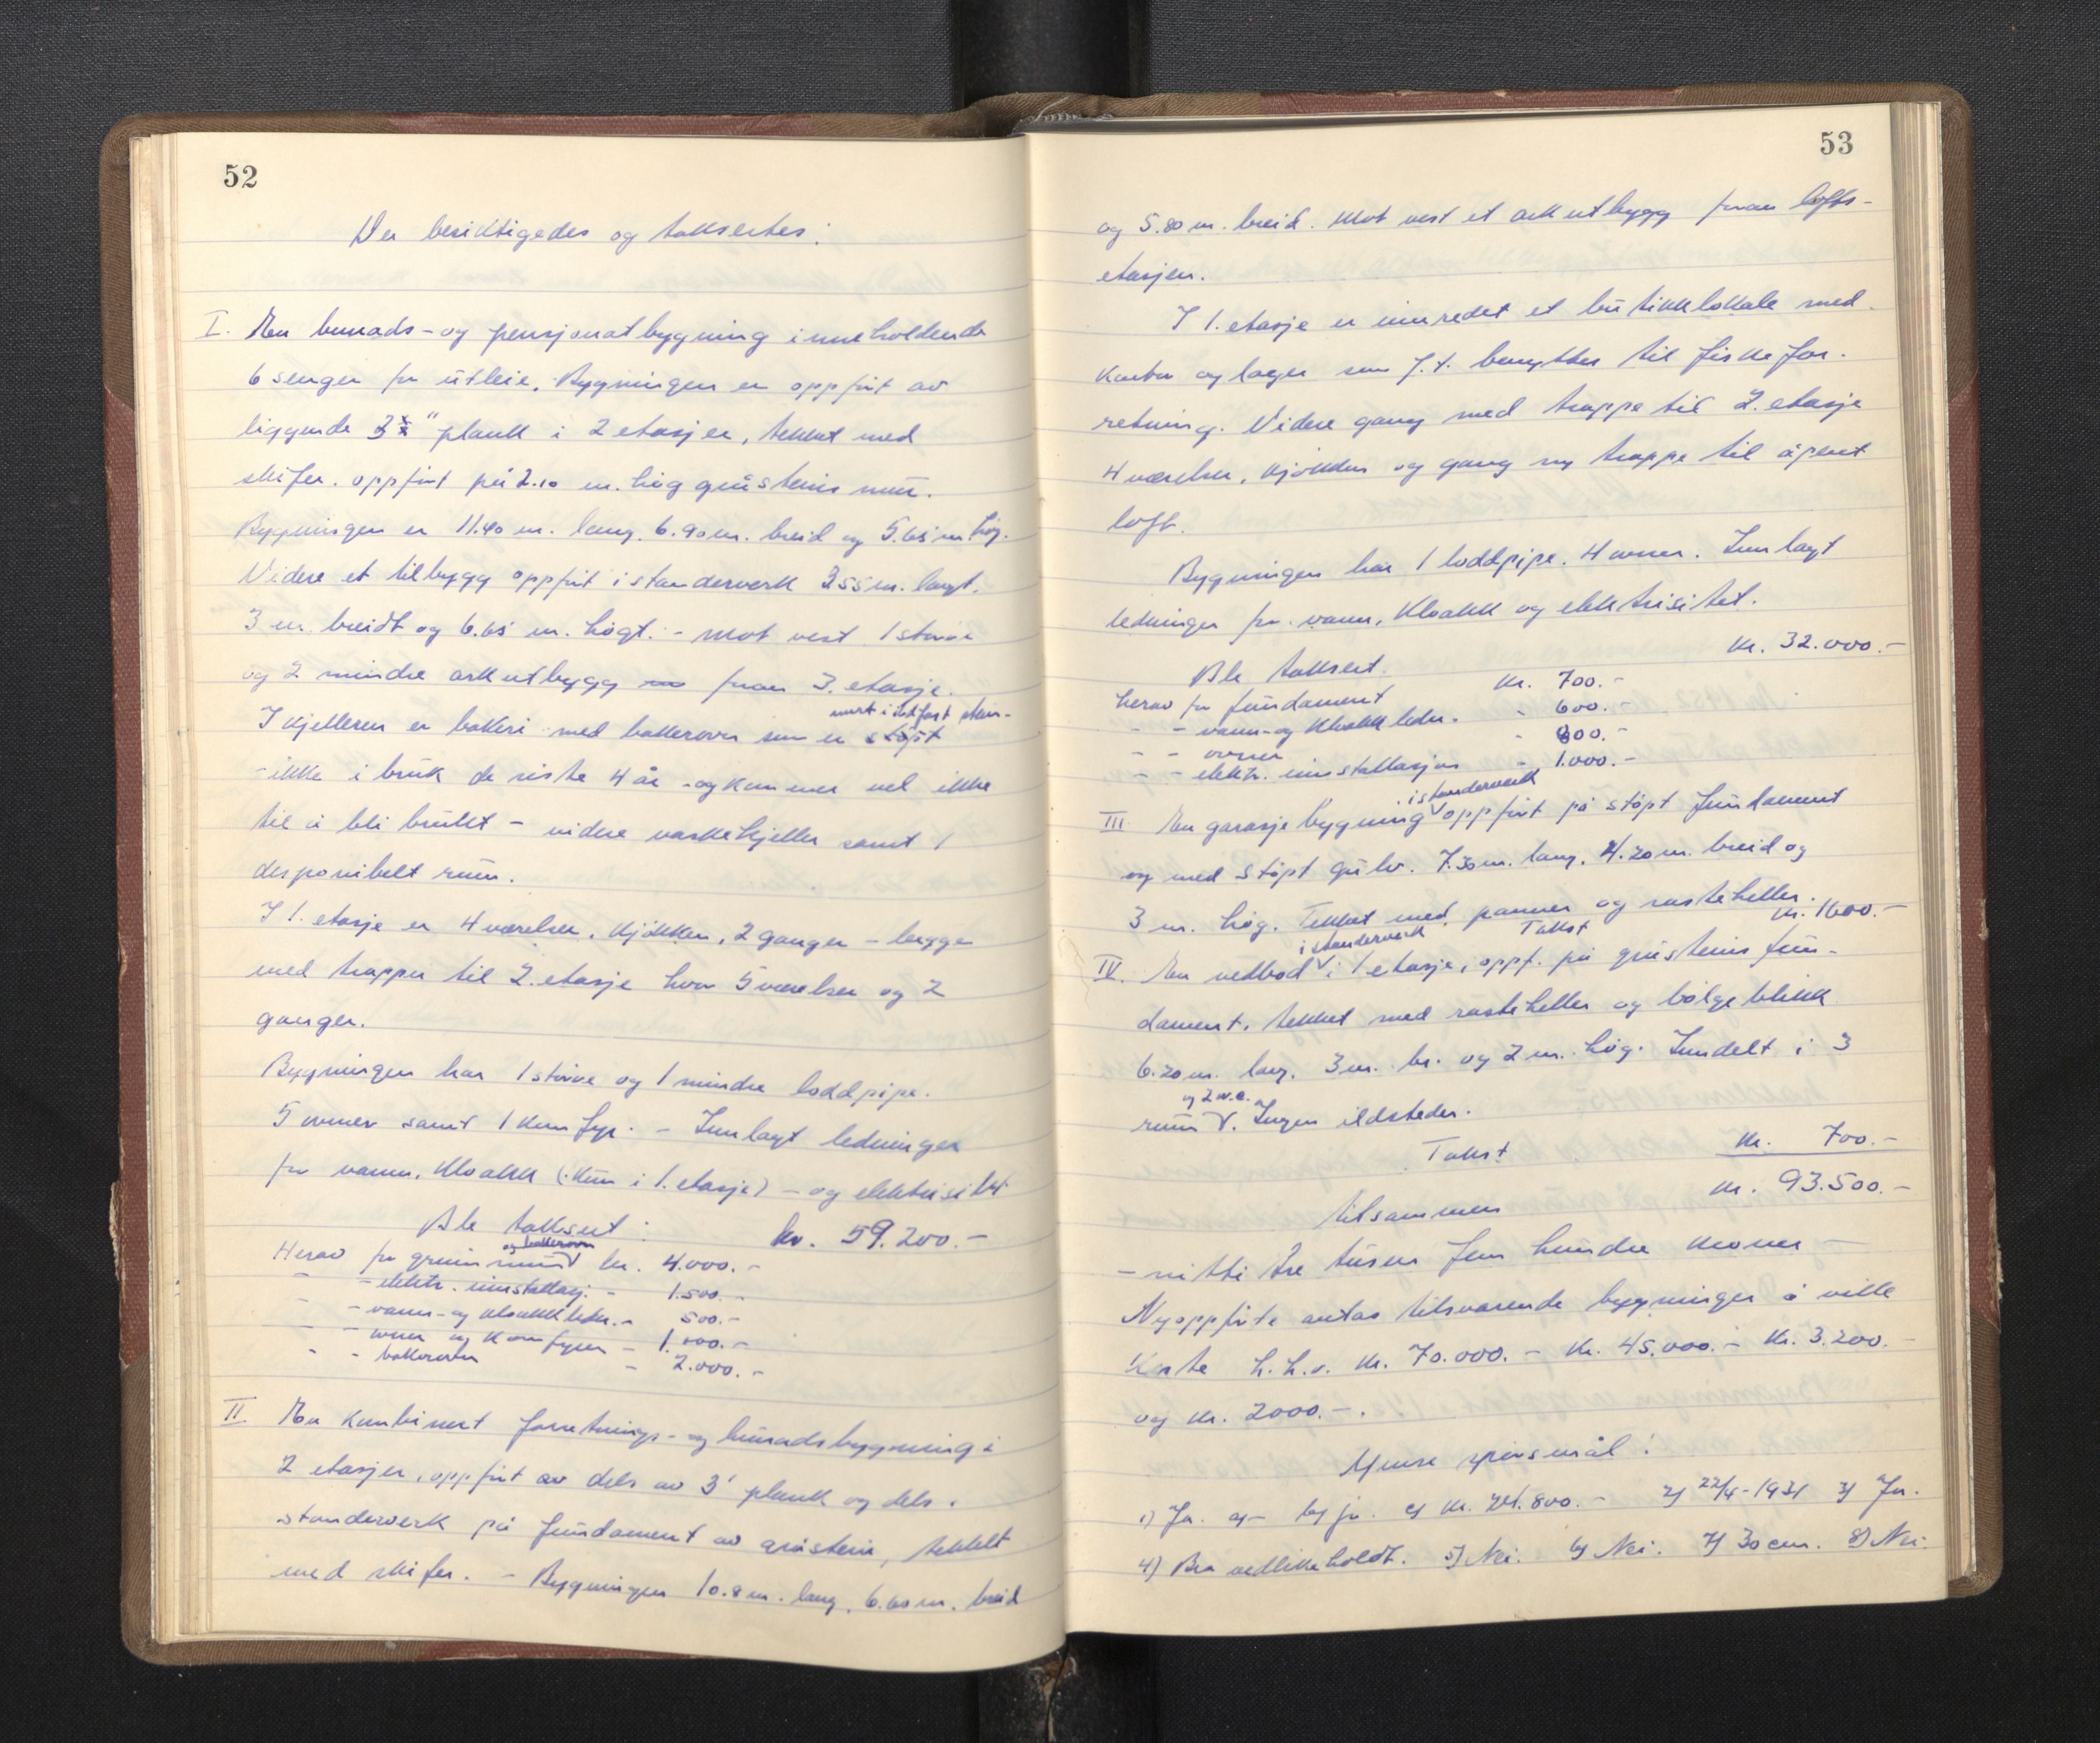 52
Der besiktigedes og taksertes:
I. En buuads- og pensjonatbygning inneholdende
6 senger for utleie. Bygningen er oppført av
liggende 3" plank i 2 etasjer, tekket med
skifer. oppført på 2.10 m. høg gråsteins mur.
Bygningen er 11.40 m. lang. 6.90 m. breid og 5.65 m. høg.
Videre et tilbygg oppført i standerverk 3.55 m. langt.
3 m. breidt og 6.65 m. høgt. - Mot vest 1 større
og 2 mindre arkutbygg fram 3. etasje.
murt i ildfast stein-
I kjelleren er bakeri med bakerovn som er støpt
- ikke i bruk de siste 4 år - og kommer vel ikke
til å bli brukt - videre vaskekjeller samt 1
desponibelt rum.
I 1. etasje er 4 værelser. Kjøkken, 2 ganger - begge
med trapper til 2. etasje hvor 5 værelser og 2
ganger.
Bygningen har 1 større og 1 mindre loddpipe.
5 ovner samt 1 komfyr. - Innlagt ledninger
for vann, kloakk (: kun i 1. etasje) - og elektrisitet
Ble taksert: kr. 59.200.-
og bakerovn
Herav for grunnmur kr. 4.000.-
- - elektr. innstallasj. - 1.500.-
- - vann- og kloakkledn. - 500.-
- - ovner og komfyren - 1.000.-
- - bakerovn - 2.000.-
II En kombinert forretnings- og buuadsbygning i
2 etasjer, oppført av dels av 3" plank og dels i
standerverk på fundament av gråstein, tekket
med skifer. - Bygningen 10.8 m. lang. 6.60 m. breid
53
og 5.80 m. breid. Mot vest et arkutbygg fram lofts-
etasjen.
I 1. etasje er innredet et butikklokale med
kontor og lager som f.t. benyttes til fiskefor-
retning. Videre gang med trappe til 2. etasje
4 værelser, kjøkken og gang og trappe til åpent
loft.
Bygningen har 1 loddpipe. 4 ovner. Innlagt
ledninger for vann, kloakk og elektrisitet.
Ble taksert. kr. 32.000.-
herav for fundament kr. 700.-
- - vann- og kloakkledn. - 600.-
- - ovner - 800.-
- - elektr. innstallasjon - 1.000.-
i standerverk
III En garasjebygning oppført på støpt fundament
og med støpt gulv. 7.30 m. lang. 4.20 m. breid og
3 m. høg. Tekket med panner og rasteheller.
Takst kr. 1600.-
i standerverk
IV. En vedbod i 1 etasje, oppf. på gråsteins fun-
dament, tekket med rasteheller og bølgeblikk
6.20 m. lang. 3 m. br. og 2 m. høg. Inndelt i 3
og 2 w.c.
rum. Ingen ildsteder.
Takst kr. 700.-
tilsammen kr. 93.500.-
- nitti tre tusen fem hundre kroner -
Nyoppførte antas tilsvarende bygninger å ville
koste h.h.v. kr. 70.000.- kr. 45.000.- kr. 3.200.-
og kr. 2000.-.
Ymse spørsmål:
1) Ja. a) - b) ja. c) kr. 24.800.- 2) 22/4-1931 3) Ja.
4) Bra vedlikeholdt. 5) Nei. 6) Nei. 7) 30 cm. 8) Nei.